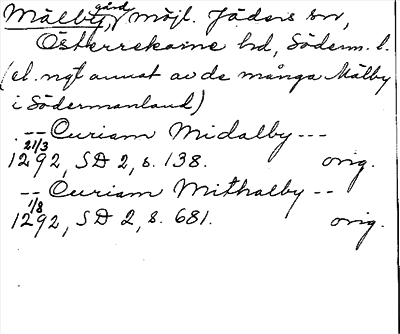 Mälby, gård, möjl. Jäders sn,
Österrekarne hd, Söderm. l.
(el. ngt annat av de många Mälby
i Södermanland)
-- Curiam Midalby ---
21/3 1292, SD 2, s. 138. orig.
-- Curiam Mithalby --
1/8 1292, SD 2, s. 681. orig.